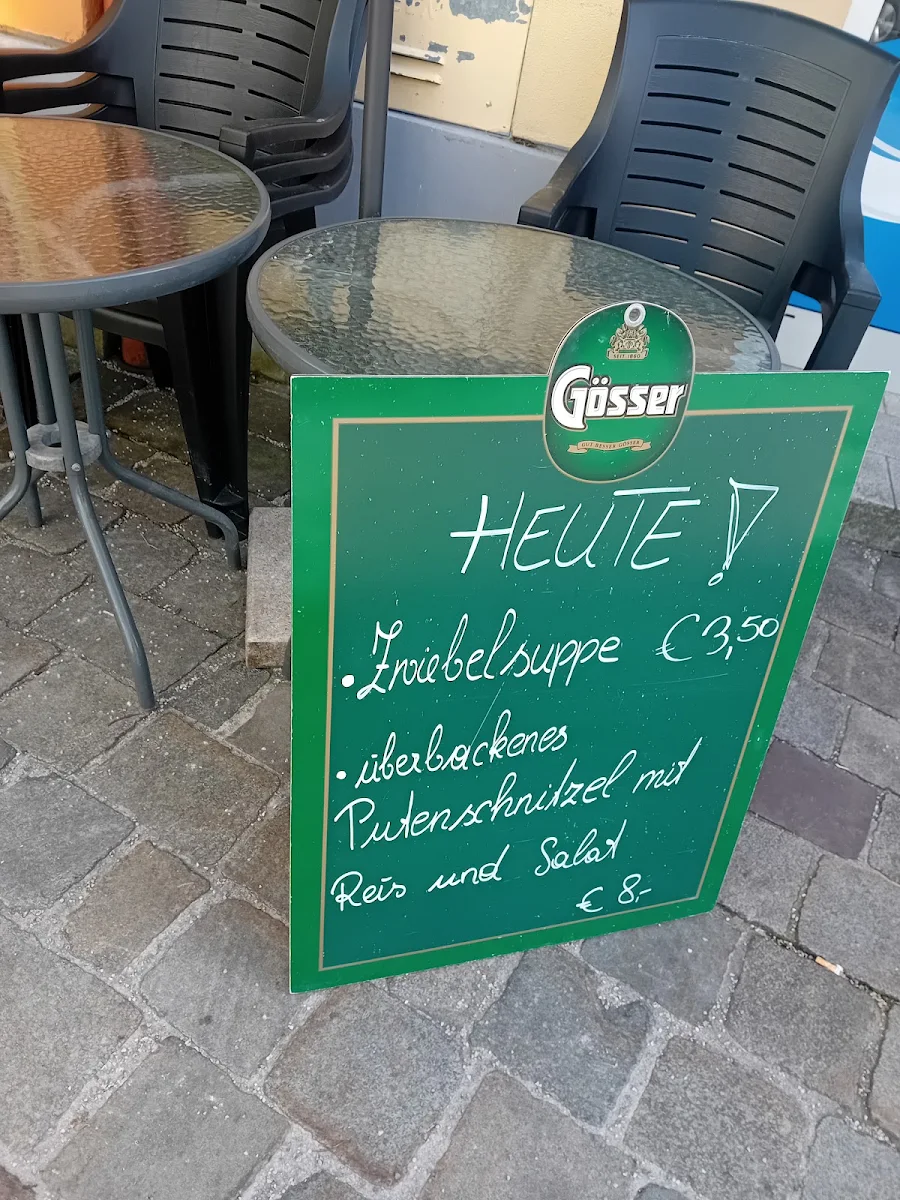 SEIT 1860
Gösser
GUT. BESSER. GÖSSER.
HEUTE!
• Zwiebelsuppe € 3,50
• überbackenes
Putenschnitzel mit
Reis und Salat
€ 8,-